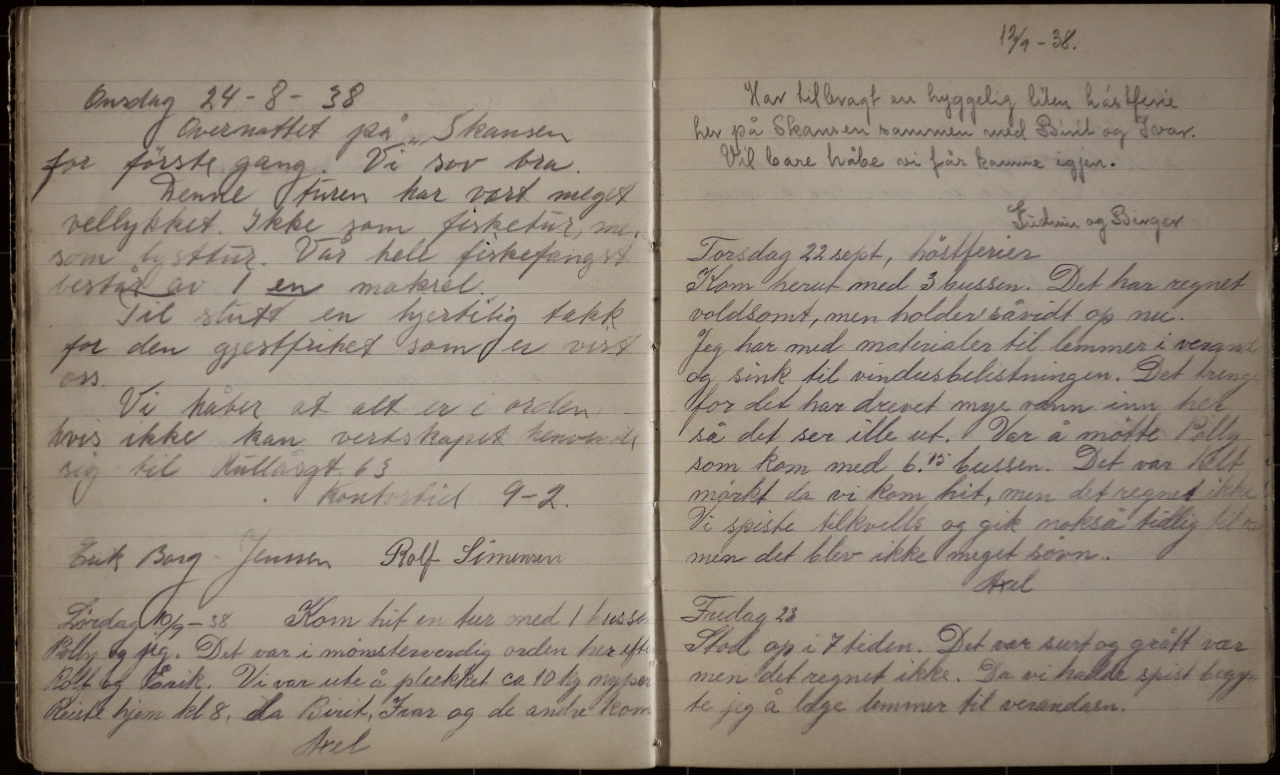 Onsdag 24-8-38
Overnattet på Skansen
for første gang. Vi sov bra.
Denne turen har vært meget
vellykket. Ikke som fisketur, me
som lysttur. Vår hele fiskefangst
består av 1 en makrel.
Til slutt en hjertelig takk
for den gjestfrihet som er vist
oss.
Vi håber at alt er i orden
hvis ikke kan vertskapet henvende
sig til Kullåsgt. 63
Kontortid 9-2.
Erik Borg-Jenssen Rolf Simensen
Lørdag 10/9-38 Kom hit en tur med 1 busse
Polly og jeg. Det var i mønsterverdig orden her efte
Rolf og Erik. Vi var ute å plukket ca 10 kg nyper
Reiste hjem kl 8, da Birit, Ivar og de andre kom
Axel
12/9-38.
Har tilbragt en hyggelig liten høstferie
her på Skansen sammen med Birit og Ivar.
Vil bare håbe vi får komme igjen.
Gudrun og Birger
Torsdag 22 sept, høstferier
Kom herut med 3 bussen. Det har regnet
voldsomt, men holder såvidt op nu.
Jeg har med materialer til lemmer i verand
og sink til vindusbelistningen. Det treng
for det har drevet mye vann inn her
så det ser ille ut. Var å møtte Polly
som kom med 6.15 bussen. Det var helt
mørkt da vi kom hit, men det regnet ikke
Vi spiste tilkvells og gik nokså tidlig til
men det blev ikke meget søvn.
Axel
Fredag 23
Stod op i 7 tiden. Det var surt og grått vær
men det regnet ikke. Da vi hadde spist begyn
te jeg å lage lemmer til verandaen.